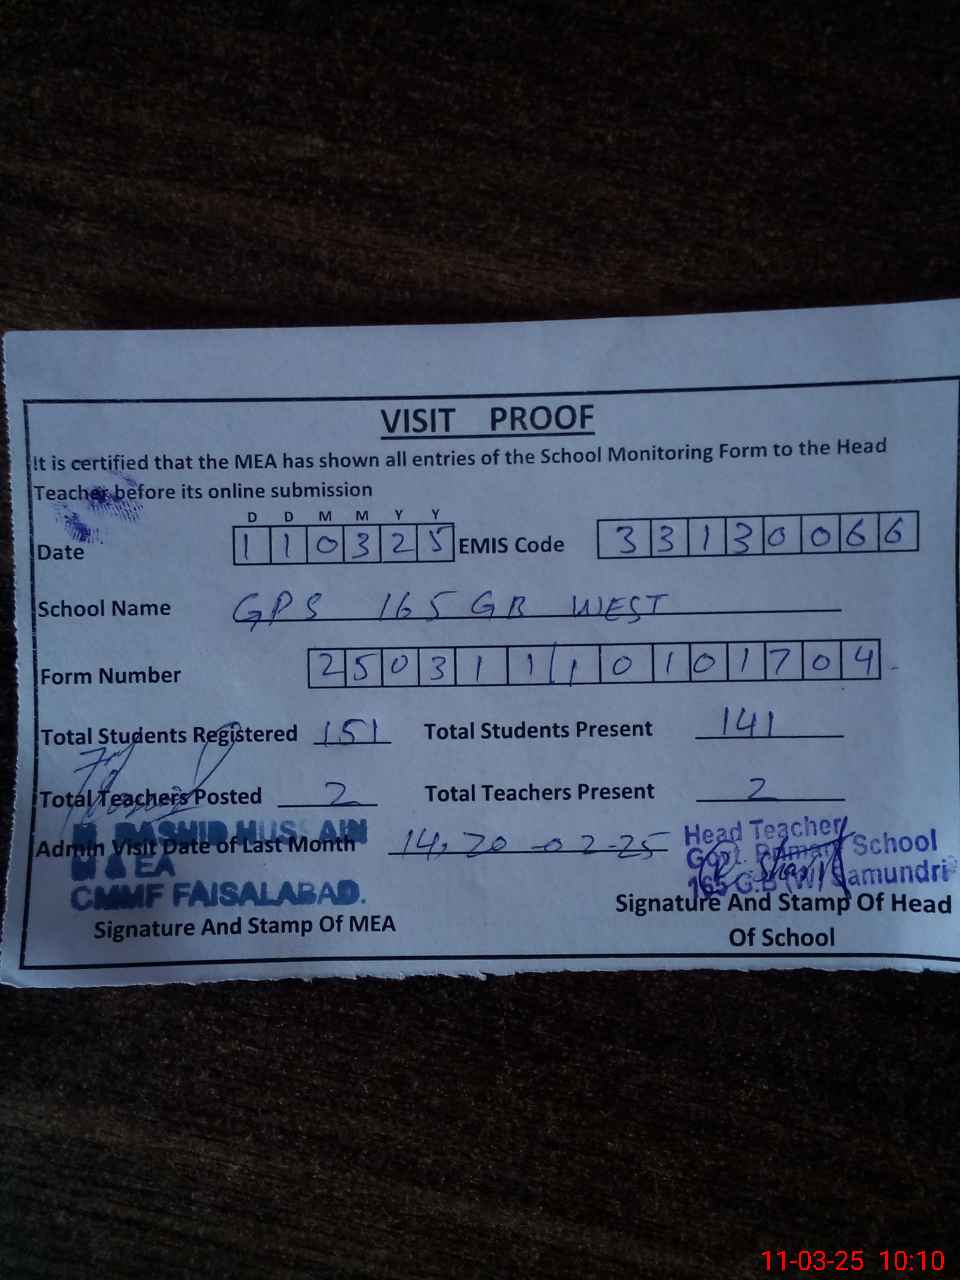 VISIT PROOF
It is certified that the MEA has shown all entries of the School Monitoring Form to the Head
Teacher before its online submission
D D M M Y Y
Date 110325 EMIS Code 33130066
School Name GPS 165 GB WEST
Form Number 25031110101704
Total Students Registered 151 Total Students Present 141
Total Teachers Posted 2 Total Teachers Present 2
M. RASHID HUSSAIN
Admin Visit Date of Last Month 14, 20 -02-25
M & EA
CMMF FAISALABAD.
Head Teacher
Govt. Primary School
165 G.B (W) Samundri
Signature And Stamp Of MEA
Signature And Stamp Of Head
Of School
11-03-25 10:10